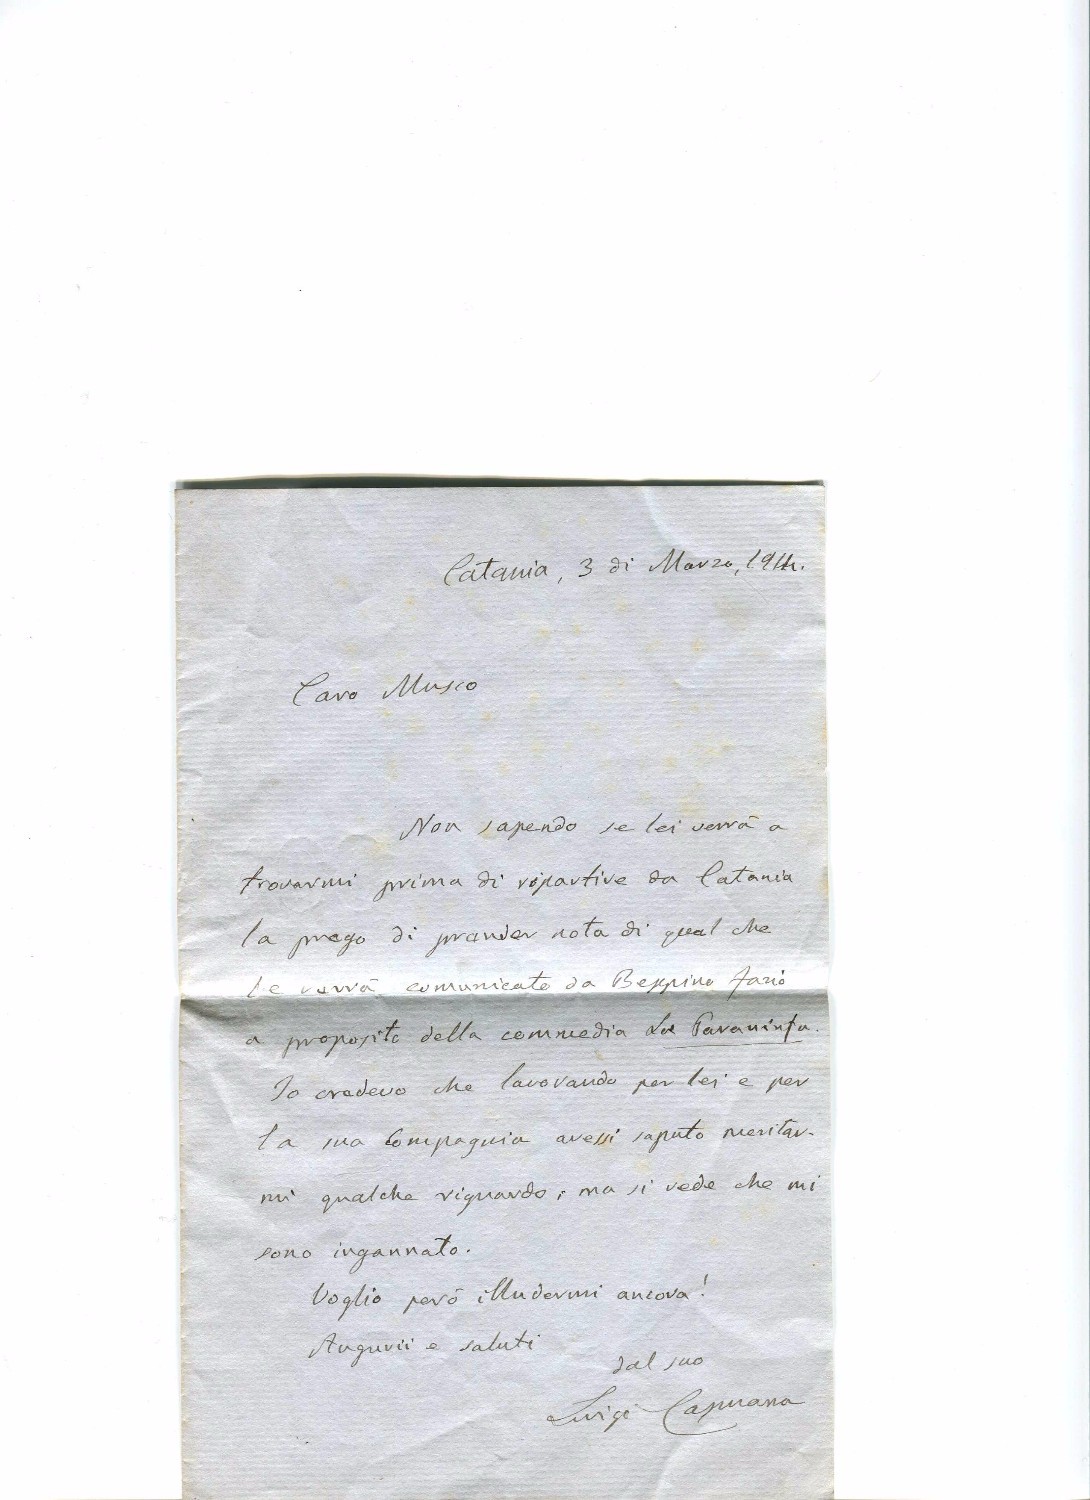 Catania, 3 di Marzo, 1914.
Caro Musco
Non sapendo se lei verrà a
trovarmi prima di ripartire da Catania
la prego di prender nota di quel che
le verrà comunicato da Beppino Fazio
a proposito della commedia Lu Paraninfu.
Io credevo che lavorando per lei e per
la sua Compagnia avessi saputo meritar-
mi qualche riguardo; ma si vede che mi
sono ingannato.
Voglio però illudermi ancora!
Augurii e saluti
dal suo
Luigi Capuana